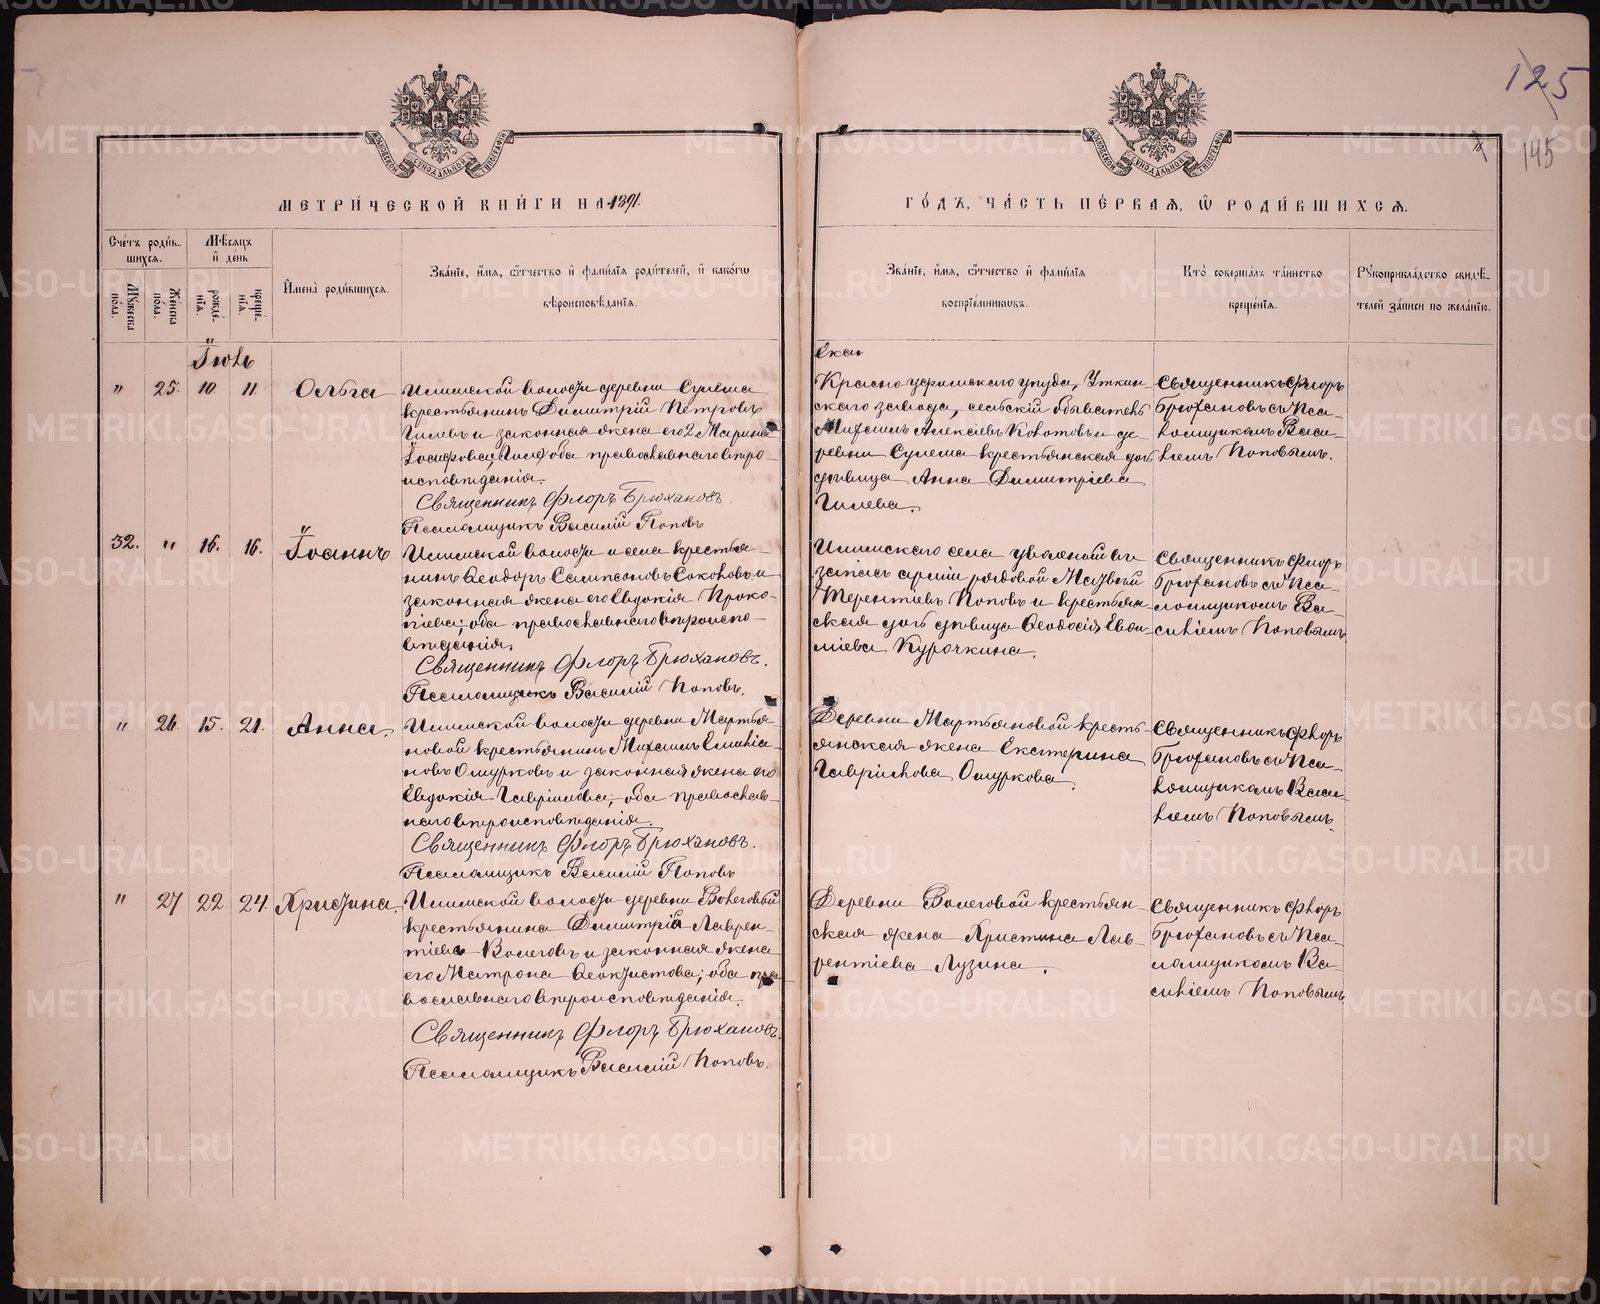 125
145
МЕТРИ́ЧЕСКОЙ КНИ́ГИ НА 1891.
ГО́ДЪ, ЧА́СТЬ ПЕ́РВАѦ, Ѡ҆ РОДИ́ВШИХСѦ.
Сче́тъ роди́в-
шихсѧ.
Мꙋ́жеска
по́ла.
Же́нска
по́ла.
Мѣ́сѧцъ
и҆ де́нь
рожде́-
нїѧ.
креще́-
нїѧ.
И҆мена̀ роди́вшихсѧ.
Зва́нїе, и҆́мѧ, ѻ҆́тчество и҆ фами́лїѧ роди́телей, и҆ како́гѡ
вѣроисповѣ́данїѧ.
Зва́нїе, и҆́мѧ, ѻ҆́тчество и҆ фами́лїѧ
воспрїе́мниковъ.
Кто̀ соверша́лъ та́инство
креще́нїѧ.
Рꙋкоприкла́дство свидѣ́-
телей за́писи по жела́нїю.
Іюль
" 25. 10. 11. Ольга
Илимской волости деревни Сулема
крестьянинъ Димитрій Петровъ
Гилевъ и законная жена его Марина
Іосифова; оба православнаго вѣро-
исповѣданія.
Священникъ Флоръ Брюхановъ.
Псаломщикъ Василій Поповъ
Красноуфимскаго уѣзда, Уткин-
скаго завода, сельскій обыватель
Михаилъ Алексѣевъ и де-
ревни Сулема крестьянская дочь
дѣвица Анна Димитріева
Гилева.
Священникъ Флоръ
Брюхановъ съ Пса-
ломщикомъ Васи-
ліемъ Поповымъ.
32. " 16. 16. Іоаннъ
Илимской волости и села крестья-
нинъ Ѳеодоръ Сампсоновъ Соколовъ и
законная жена его Евдокія Проко-
піева; оба православнаго вѣроиспо-
вѣданія.
Священникъ Флоръ Брюхановъ.
Псаломщикъ Василій Поповъ.
Илимскаго села уволенный въ
запасъ арміи рядовой Матвѣй
Терентіевъ Поповъ и крестьян-
ская дочь дѣвица Ѳеодосія
Курочкина.
Священникъ Флоръ
Брюхановъ съ Пса-
ломщикомъ Ва-
силіемъ Поповымъ.
" 26. 15. 21. Анна.
Илимской волости деревни Мартья-
новой крестьянинъ Михаилъ Емилiа-
новъ Ошурковъ и законная жена его
Евдокія Гавріилова; оба православ-
наго вѣроисповѣданія.
Священникъ Флоръ Брюхановъ.
Псаломщикъ Василій Поповъ
Деревни Мартьяновой кресть-
янская жена Екатерина
Гаврилова Ошуркова.
Священникъ Флоръ
Брюхановъ съ Пса-
ломщикомъ Васи-
ліемъ Поповымъ.
" 27 22. 24 Христина.
Илимской волости деревни Волеговой
крестьянинъ Димитрій Лаврен-
тіевъ Волеговъ и законная жена
его Матрона Ѳеоктистова; оба пра-
вославнаго вѣроисповѣданія.
Священникъ Флоръ Брюхановъ.
Псаломщикъ Василій Поповъ.
Деревни Волеговой крестьян-
ская жена Христина Лав-
рентіева Лузина.
Священникъ Флоръ
Брюхановъ съ Пса-
ломщикомъ Ва-
силіемъ Поповымъ.
METRIKI.GASO-URAL.RU